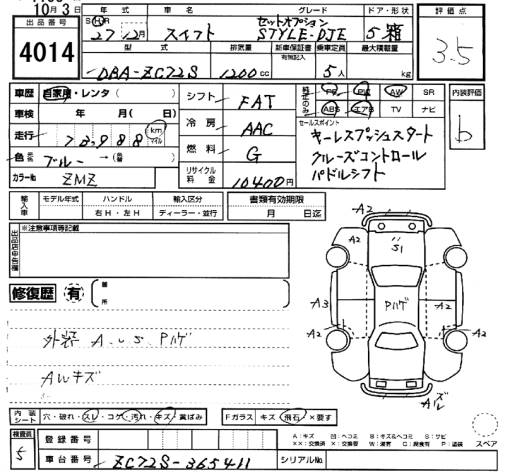 10月3日
出品番号
4014
年式 車名 グレード ドア・形状
S H R 27年12月 スイフト セットオプション STYLE-DJE 5 箱
型式 排気量 新車保証書 有無記入 乗車定員 最大積載量
DBA-ZC72S 1200cc 5人 kg
評価点
3.5
車歴 自家用・レンタ( )
車検 年 月( 日)
走行 km マイル
色 ブルー →(
カラーNo ZMZ
シフト FAT
冷房 AAC
燃料 G
リサイクル料金 10400円
純正のみ PS PW AW SR
ABS エアB TV ナビ
セールスポイント
キーレスプッシュスタート
クルーズコントロール
パドルシフト
内装評価
b
輸入車 モデル年式 ハンドル 輸入区分
右H・左H ディーラー・並行
書類有効期限
月 日迄
※注意事項等記載
修復歴 有
箇所
外装 A S Pハゲ
AWキズ
A2
A2 S1 A2
A3 Pハゲ A2
A2 A2
Aズレ
スペア
内装シート 穴・破れ・スレ・コゲ・汚れ・キズ・黄ばみ
Fガラス キズ・飛石・×要す
検査員
5
登録番号
車台番号 ZC72S-365411 シリアルNo.
A:キズ U:ヘコミ B:キズ&ヘコミ S:サビ
XX:交換済 X:交換要 W:波 C:腐食有 P:塗装